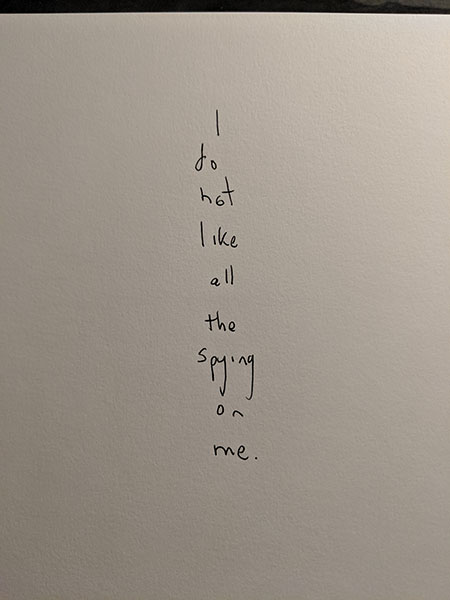 I
do
not
like
all
the
spying
on
me.